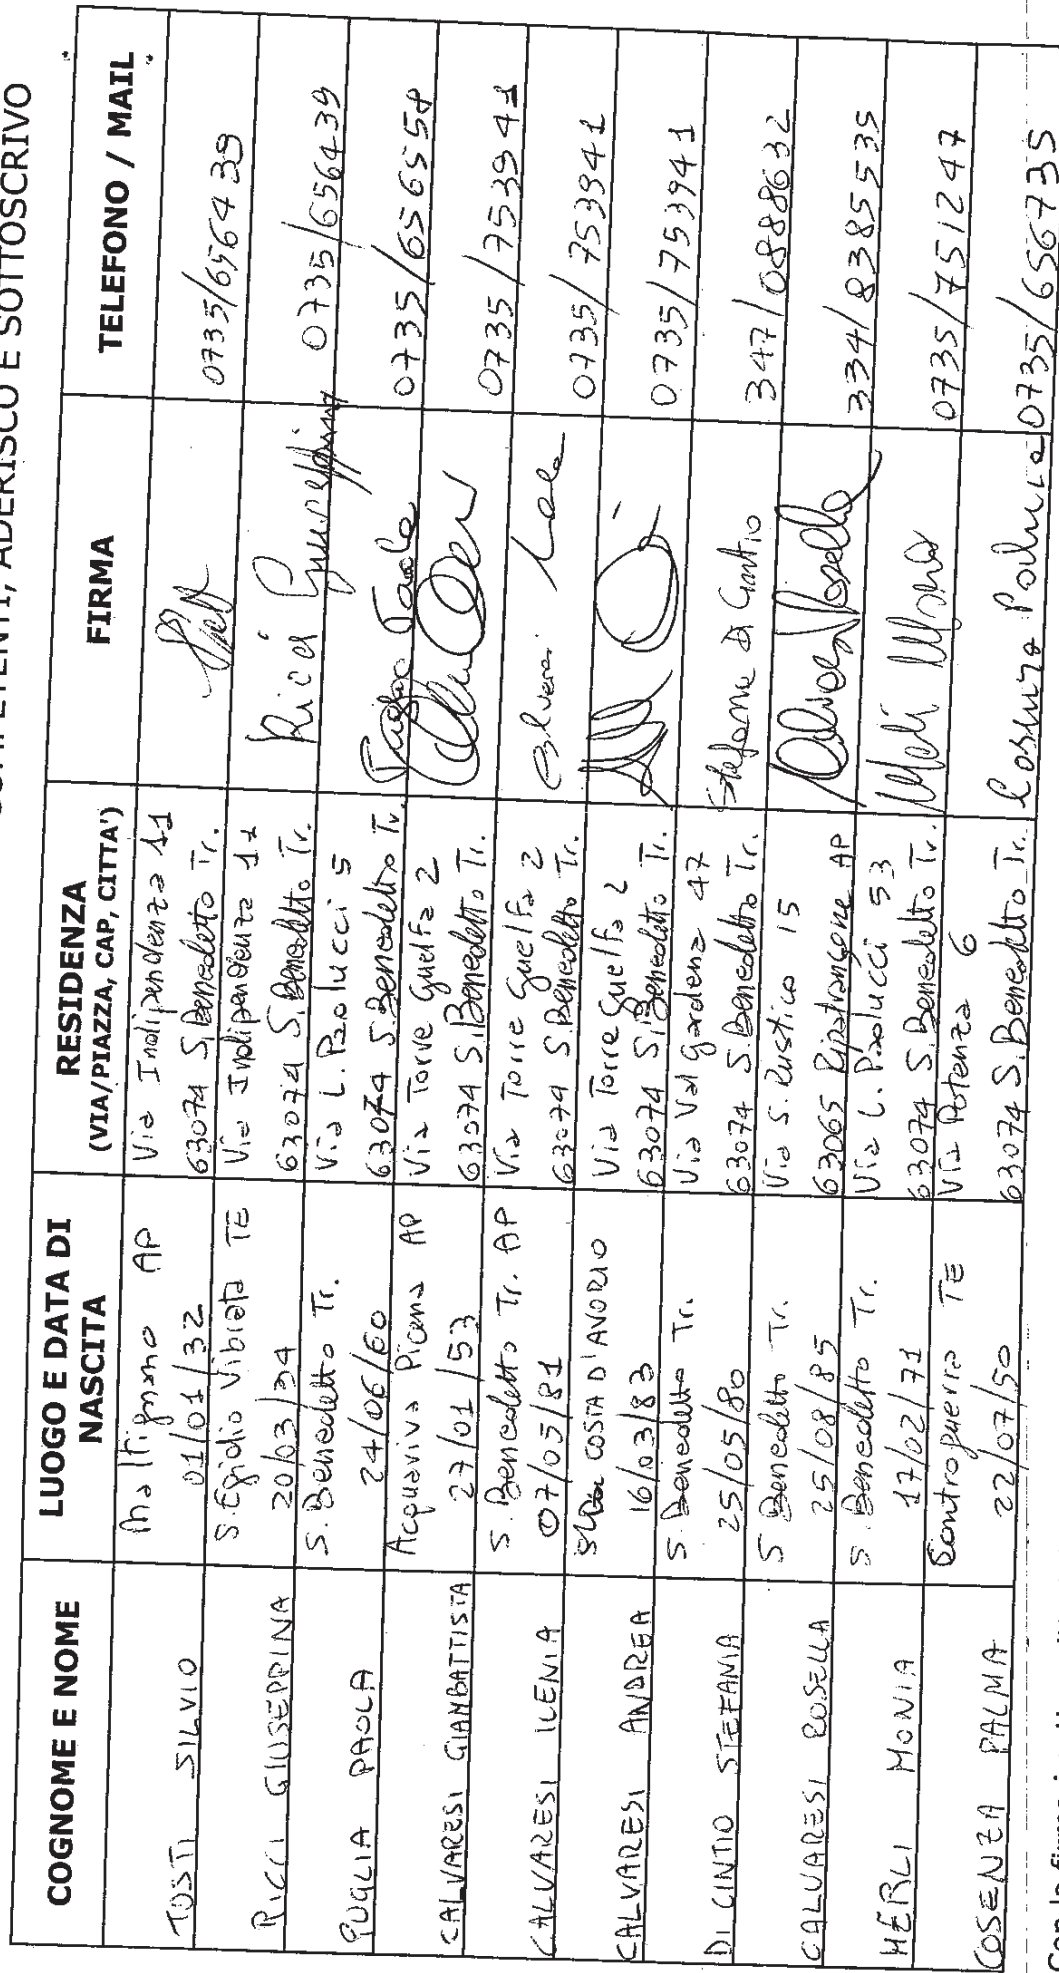 COMPETENTI, ADERISCO E SOTTOSCRIVO
COGNOME E NOME
LUOGO E DATA DI
NASCITA
RESIDENZA
(VIA/PIAZZA, CAP, CITTA')
FIRMA
TELEFONO / MAIL
TOSTI SILVIO
Maltignano AP
01/01/32
Via Indipendenza 11
63074 S. Benedetto Tr.
0735/656439
RICCI GIUSEPPINA
S. Egidio Vibrata TE
20/03/34
Via Indipendenza 11
63074 S. Benedetto Tr.
Ricci Giuseppina
0735/656439
PUGLIA PAOLA
S. Benedetto Tr.
24/06/60
Via L. Paolucci 5
63074 S. Benedetto Tr.
Puglia Paola
0735/656558
CALVARESI GIAMBATTISTA
Acquaviva Picena AP
27/01/53
Via Torre Guelfa 2
63074 S. Benedetto Tr.
0735/753941
CALVARESI ILENIA
S. Benedetto Tr. AP
07/05/81
Via Torre Guelfa 2
63074 S. Benedetto Tr.
0735/753941
CALVARESI ANDREA
COSTA D'AVORIO
16/03/83
Via Torre Guelfa 2
63074 S. Benedetto Tr.
0735/753941
DI CINTIO STEFANIA
S. Benedetto Tr.
25/05/80
Via Val Gardena 47
63074 S. Benedetto Tr.
Stefania Di Cintio
347/0888632
CALVARESI ROSELLA
S Benedetto Tr.
25/08/85
Via S. Rustico 15
63065 Ripatransone AP
Calvaresi Rosella
334/8385535
MERLI MONIA
S. Benedetto Tr.
17/02/71
Via L. Paolucci 53
63074 S. Benedetto Tr.
Merli Monia
0735/751247
COSENZA PALMA
Controguerra TE
22/07/50
Via Potenza 6
63074 S. Benedetto Tr.
Cosenza Palma
0735/656735